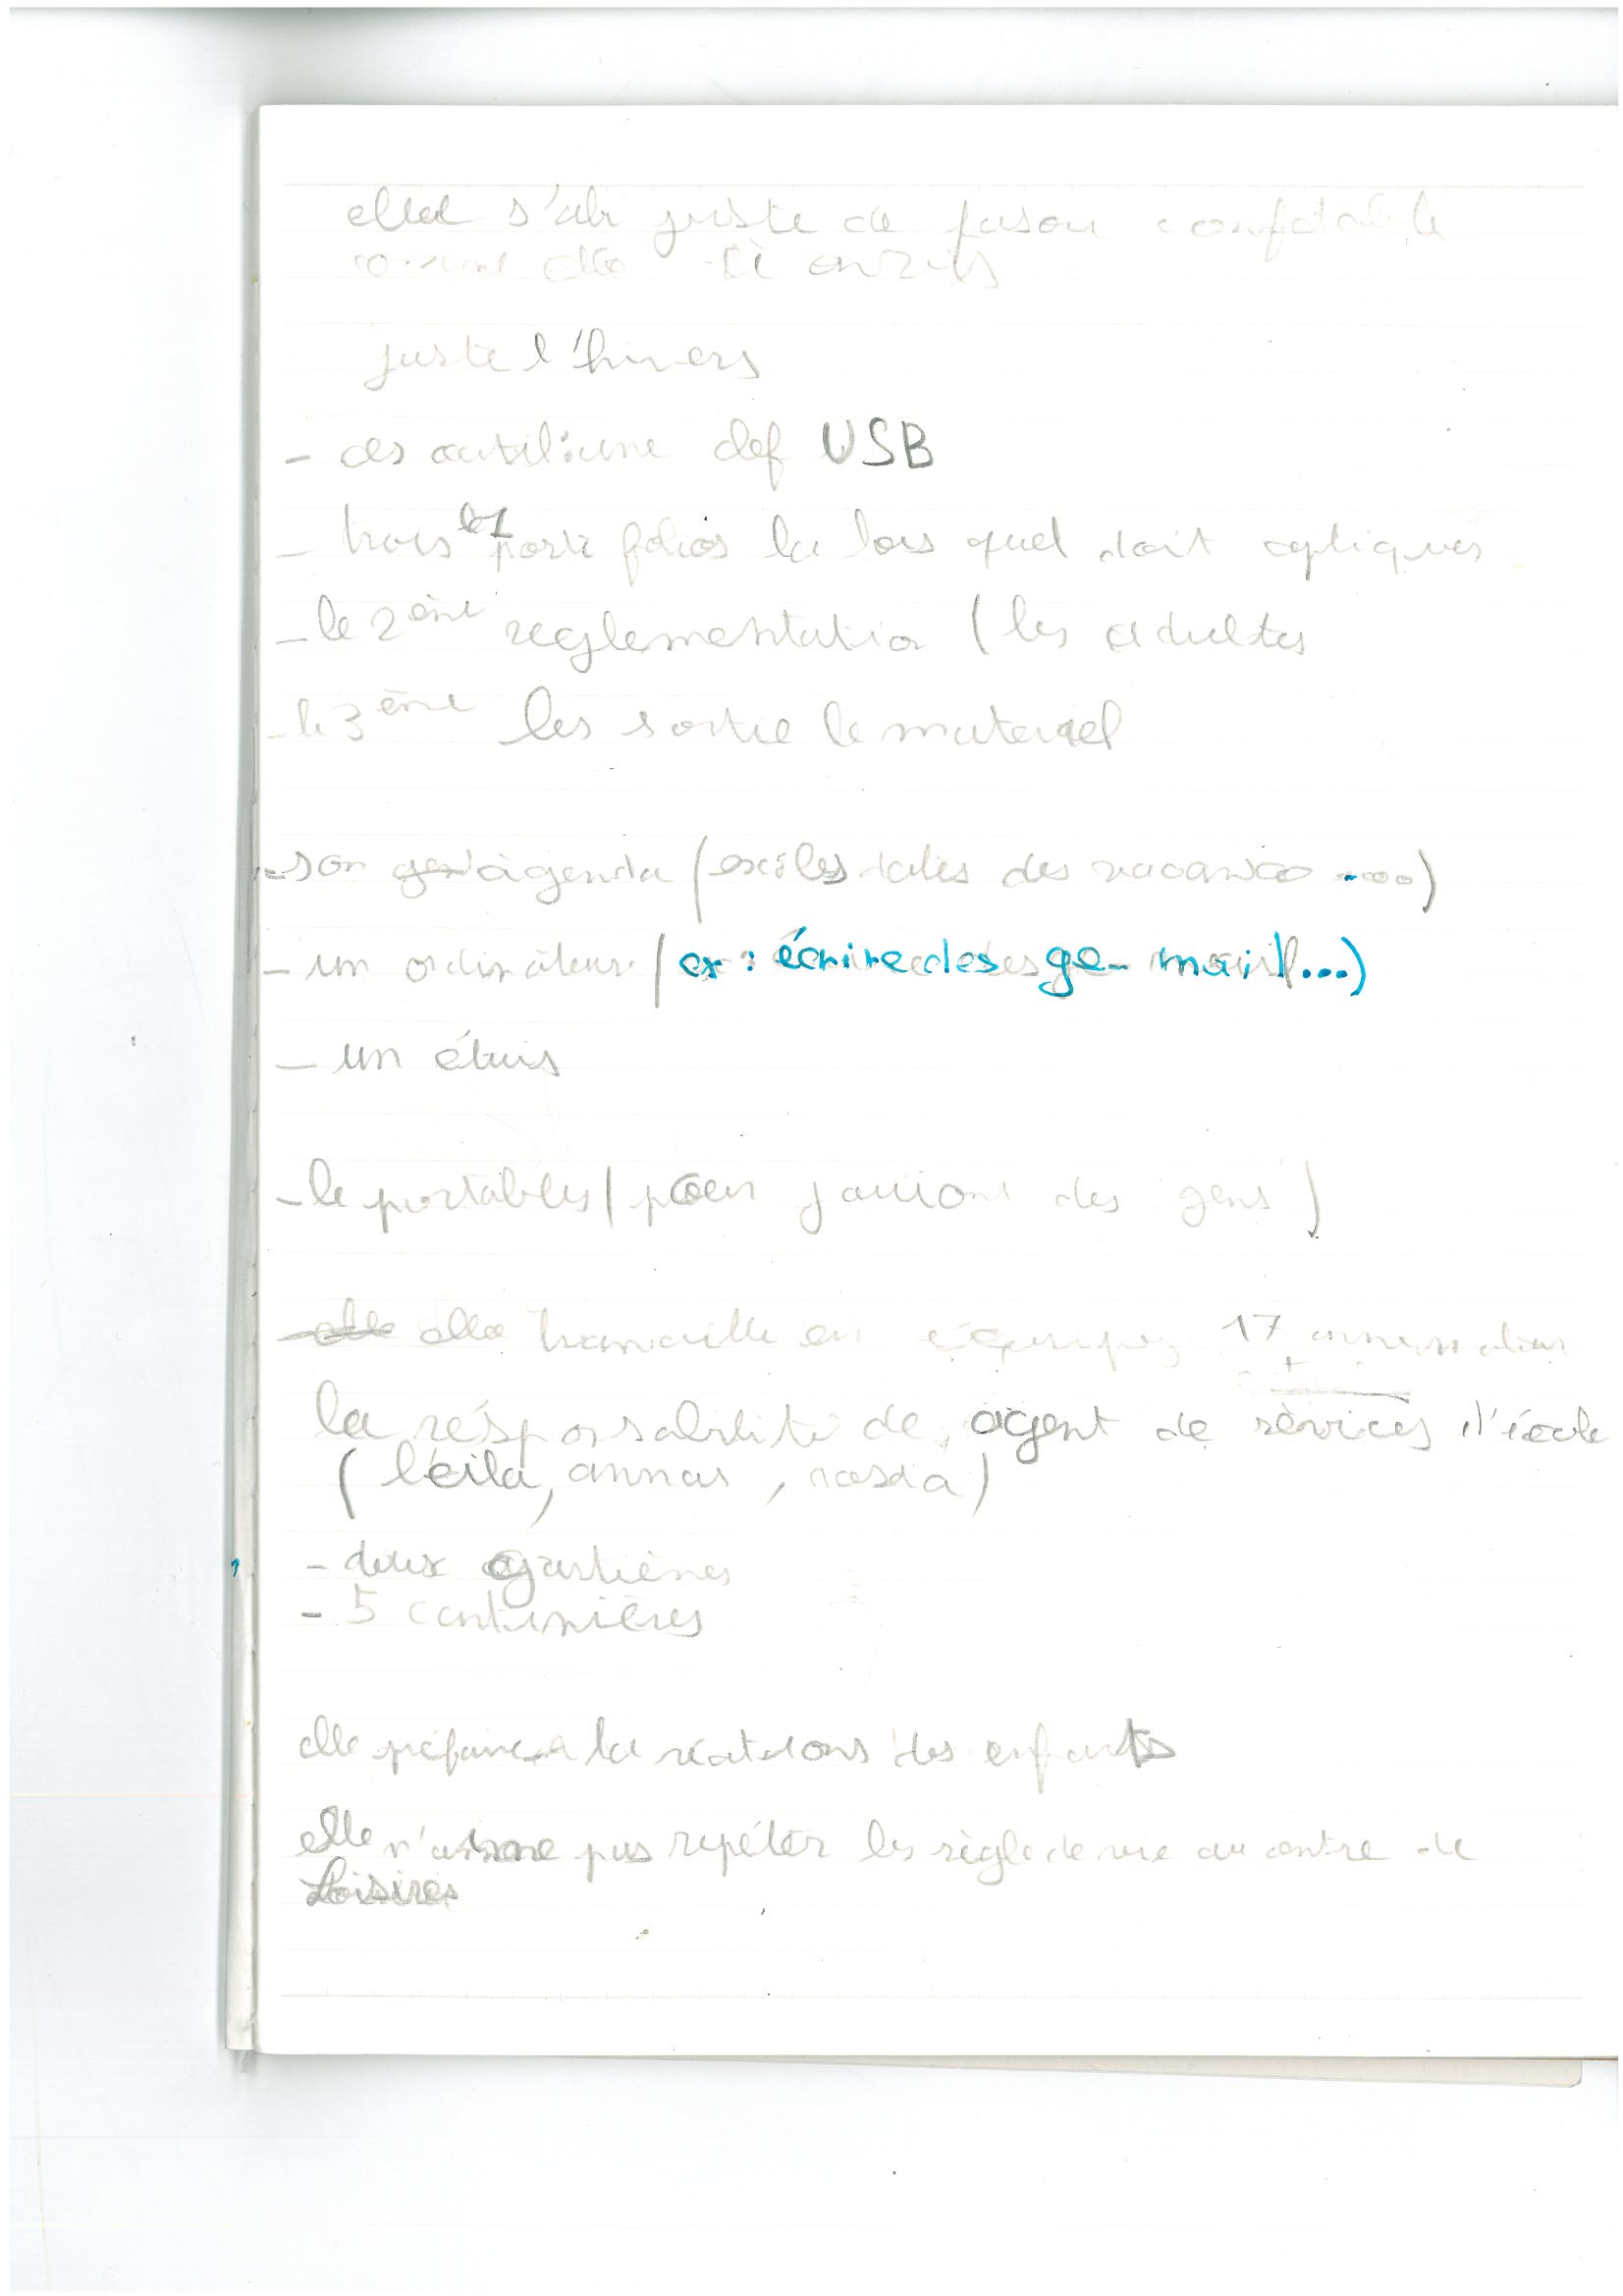 s'abi juste de fason confotable
juste l'hivers
- des outil: une clef USB
- trois porte folios la lois quel doit apliques
- le 2ème reglementation (les adultes
- le 3ème les sortie le materiel
- son agenda (ex: les dates des vacances ....)
- un ordinateur (ex : écrire des ge-mail...)
- un étuis
- le portables (pour des gens)
elle travaille en 17 animateur
+
la résponsabilité de agent de sèrvices d'école
(léila, annas,
- deux gartiènes
- 5 cantinières
elle préfaire la des enfants
elle n'aime pas repéter les règle de vie au centre de
Loisires